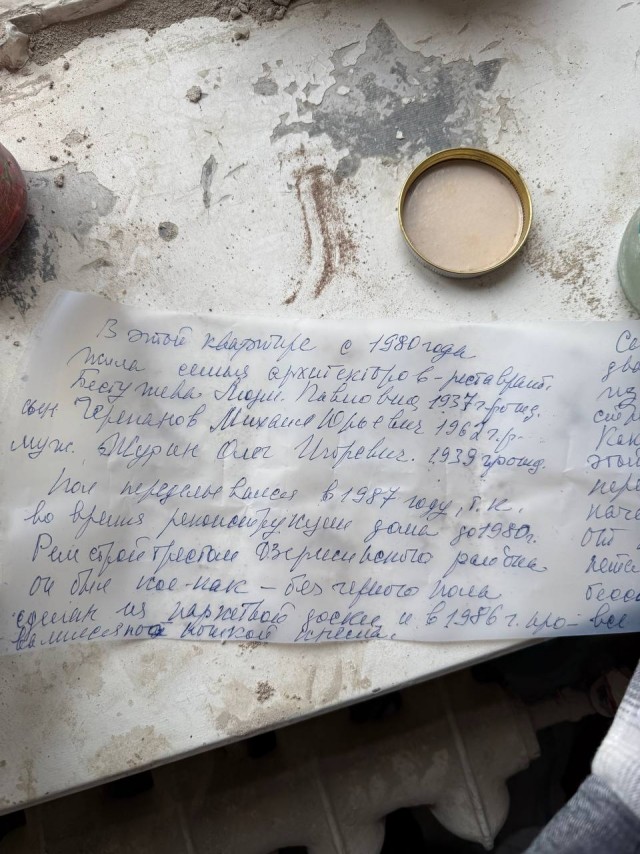 В этой квартире с 1980 года
жила семья архитекторов-реставрат.
Бестужева Людм. Павловна, 1937 г. рожд.
сын Черепанов Михаил Юрьевич 1962 г.р.
муж. Журин Олег Игоревич. 1939 г рожд.
Пол переделывался в 1987 году, т.к.
во время реконструкции дома до 1980г.
Ремстройтрестом Дзержинского района
он был кое-как – без черного пола
сделан из паркетной доски и в 1986 г. про-
валился под ножкой кресла.
Се
два
на
сто
Как
этой
пере
наче
от
лете
бесс
все